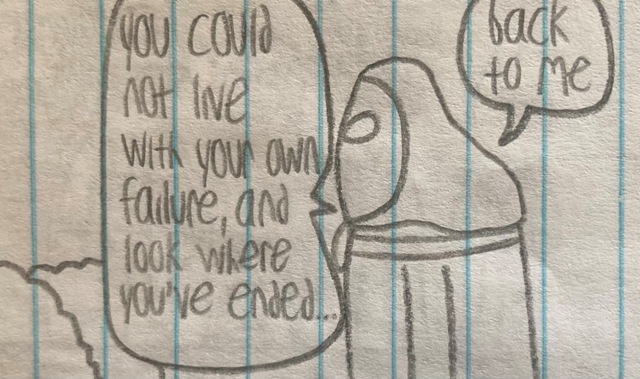 you could
not live
with your own
failure, and
look where
you've ended...
back
to me